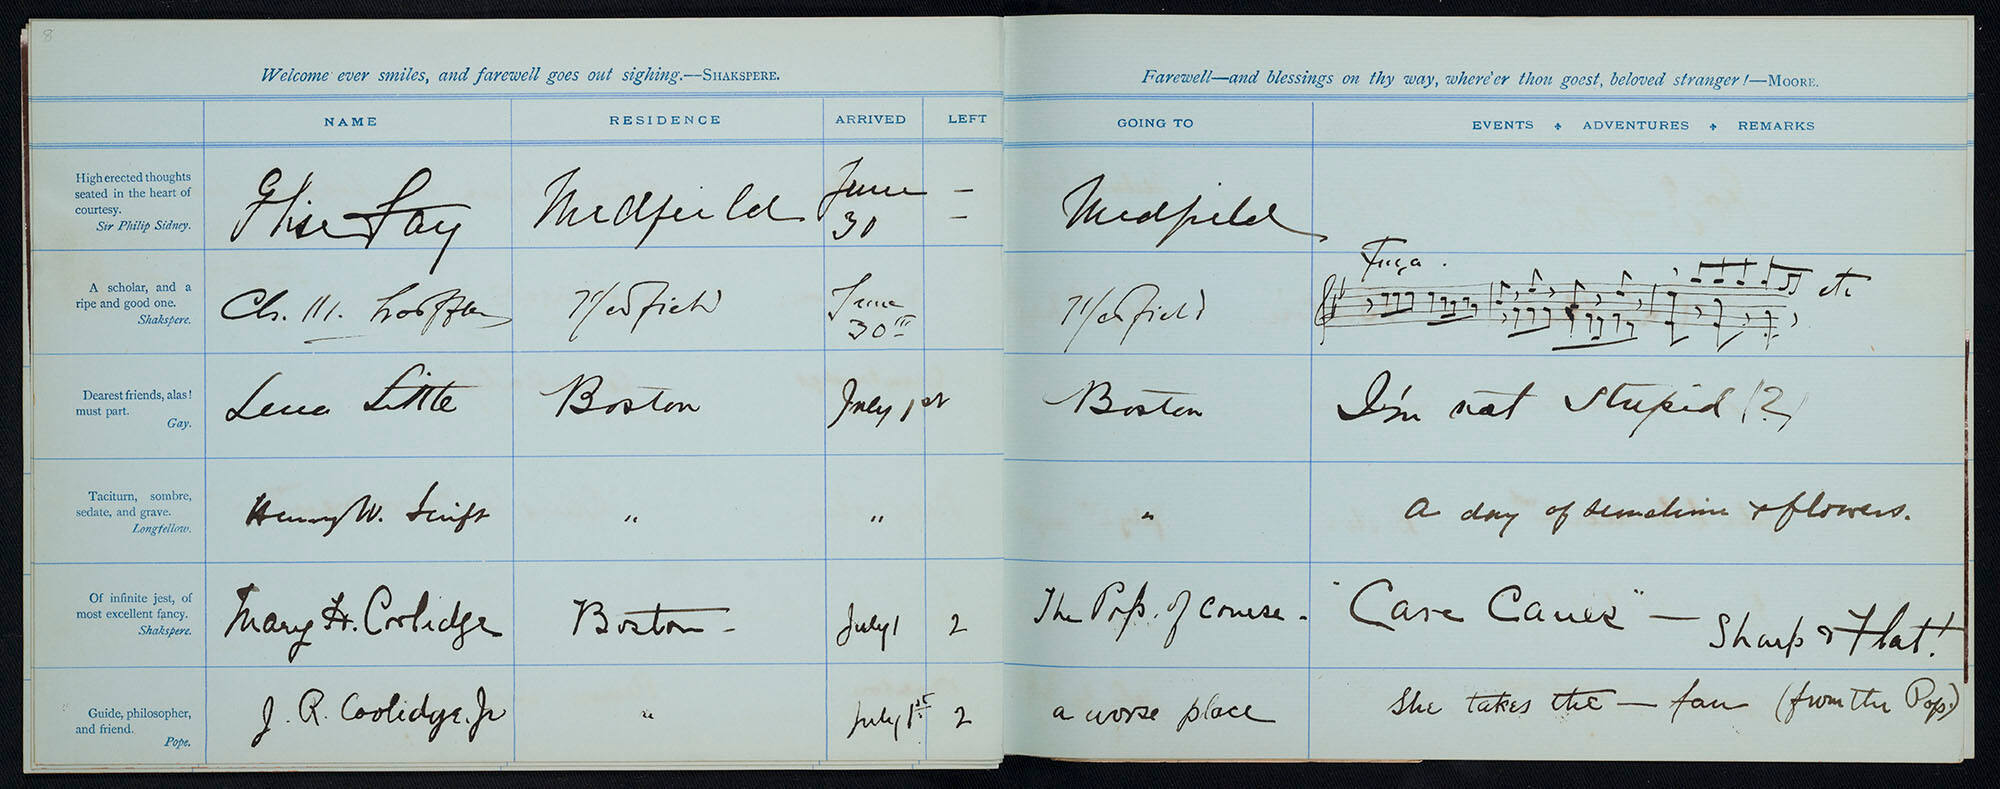 8
Welcome ever smiles, and farewell goes out sighing.—SHAKSPERE.
Farewell—and blessings on thy way, where'er thou goest, beloved stranger!—MOORE.
NAME RESIDENCE ARRIVED LEFT GOING TO EVENTS ✦ ADVENTURES ✦ REMARKS
High erected thoughts
seated in the heart of
courtesy.
Sir Philip Sidney.
Elise Fay Medfield June 30 — — Medfield
A scholar, and a
ripe and good one.
Shakspere.
Ch. M. Loeffler Medfield June 30 Medfield Fuga. etc
Dearest friends, alas!
must part.
Gay.
Lena Little Boston July 1st Boston I'm not stupid (?)
Taciturn, sombre,
sedate, and grave.
Longfellow.
Henry W. Swift " " " A day of sunshine & flowers.
Of infinite jest, of
most excellent fancy.
Shakspere.
Mary H. Coolidge Boston— July 1 2 The Pops. of course. "Care Canes" — Sharp & Flat!
Guide, philosopher,
and friend.
Pope.
J. R. Coolidge. Jr " July 1st 2 a worse place She takes the — fan (from the Pops)